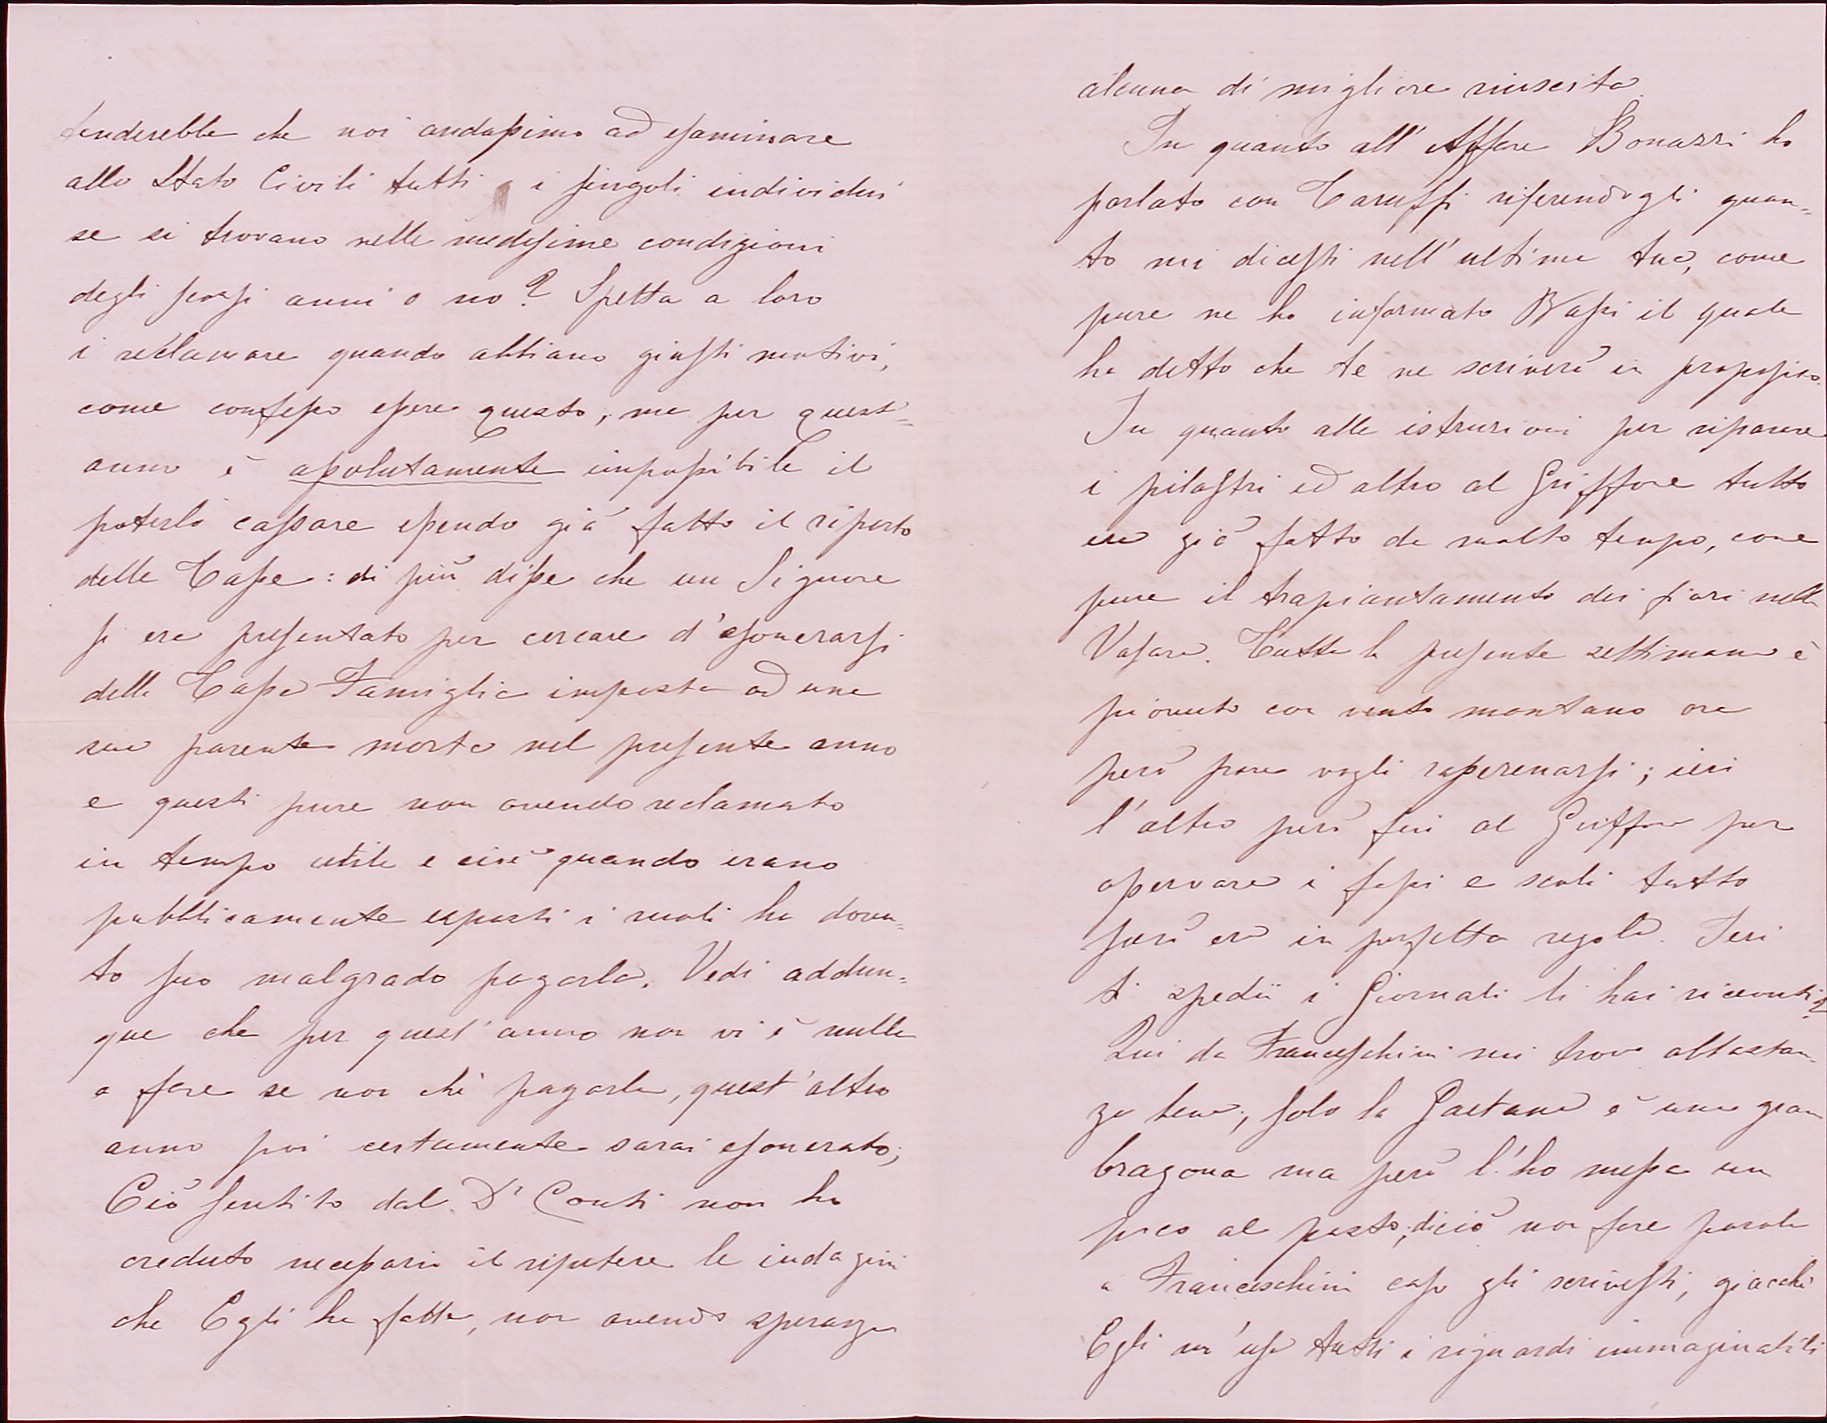 tenderebbe che noi andassimo ad esaminare
allo Stato Civili tutti i singoli individui
se si trovano nelle medesime condizioni
degli scorsi anni o no? Spetta a loro
i reclamare quando abbiano giusti motivi,
come confesso essere questo, ma per quest'=
anno è assolutamente impossibile il
poterlo cassare essendo già fatto il riparto
delle Tasse: di più disse che un Signore
si era presentato per cercare d'esonerarsi
della Tassa Famiglia imposta ad una
sua parente morta nel presente anno
e questi pure non avendo reclamato
in tempo utile e cioè quando erano
pubblicamente esposti i ruoli ha dovu=
to suo malgrado pagarla. Vedi addun=
que che per quest'anno non vi è nulla
a fare se non chè pagarla, quest'altro
anno poi certamente sarai esonerato;
Ciò sentito dal Dr Conti non ho
creduto necessario il ripetere le indagini
che Egli ha fatte, non avendo speranza
alcuna di migliore riuscita.
In quanto all'Affare Bonazzi ho
parlato con Taruffi riferendogli quan=
to mi dicesti nell'ultima tua, come
pure ne ho informato Massi il quale
ha detto che te ne scriverà in proposito.
In quanto alle istruzioni per riparare
i pilastri ed altro al Griffone tutto
era già fatto da molto tempo, come
pure il trapiantamento dei fiori nelle
Vasare. Tutta la presente settimana è
piovuto con vento montano ora
però pare vogli rasserenarsi; ieri
l'altro però fui al Griffone per
osservare i fossi e scoli tutto
però era in perfetta regola. Ieri
ti spedii i Giornali li hai ricevuti?
Qui da Franceschini mi trovo abbastan=
za bene, solo la Gaetana è una gran
bragona ma però l'ho messa un
poco al posto; diciò non fare parola
a Franceschini caso gli scrivesti, giacchè
Egli m'usa tutti i riguardi immaginabili